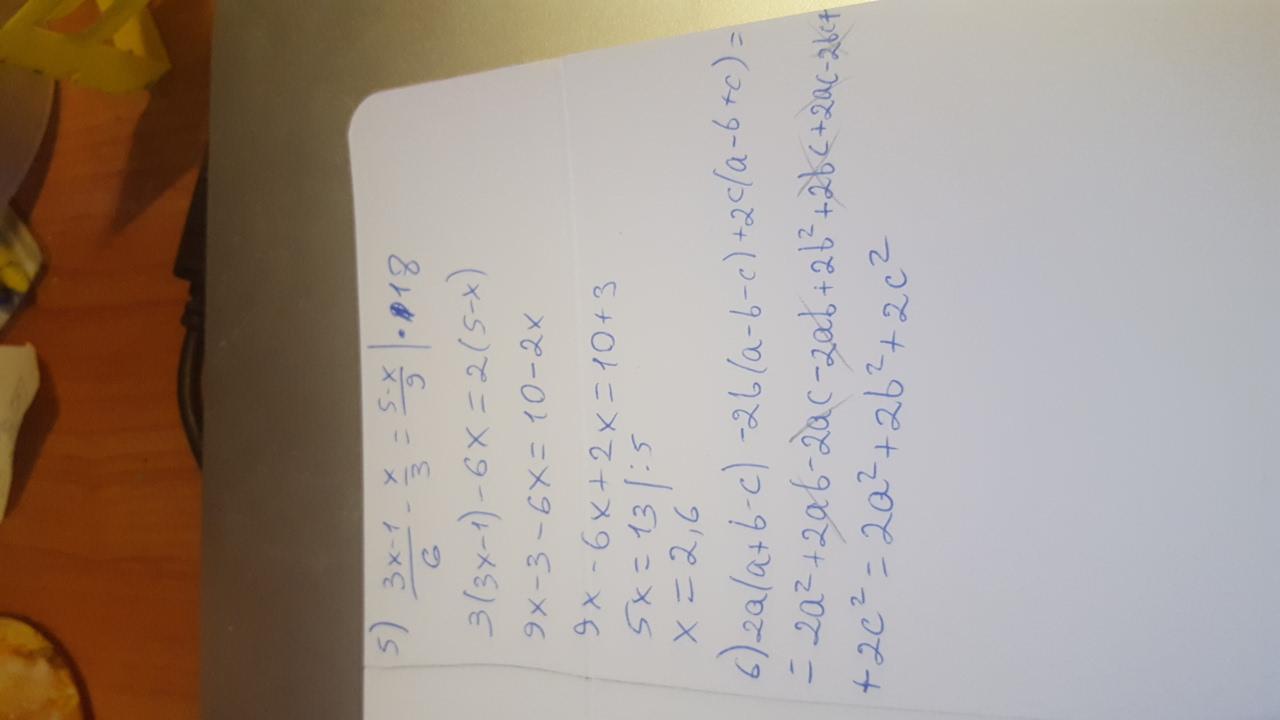 5) (3x-1)/6 - x/3 = (5-x)/9 | · 18
3(3x-1)-6x=2(5-x)
9x-3-6x=10-2x
9x-6x+2x=10+3
5x=13 |:5
x=2,6
6) 2a(a+b-c)-2b(a-b-c)+2c(a-b+c)=
=2a²+2ab-2ac-2ab+2b²+2bc+2ac-2bc+
+2c²=2a²+2b²+2c²